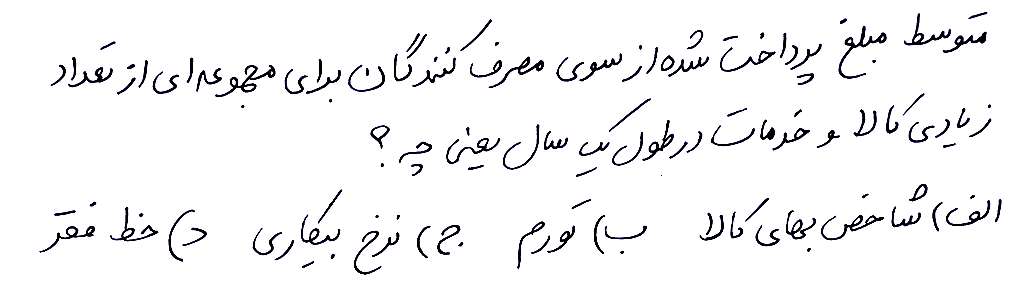 متوسط مبلغ پرداخت شده از سوی مصرف کنندگان برای مجموعه ای از تعداد
زیادی کالا و خدمات در طول یک سال یعنی چه؟
الف) شاخص بهای کالا ب) تورم ج) نرخ بیکاری د) خط فقر